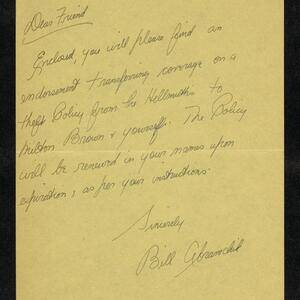 Dear Friend
Enclosed, you will please find an
endorsement transfering coverage on a
theft Policy from the Hellsmiths to
Milton Brown & yourself. The Policy
will be renewed in your names upon
expiration, as per your instructions.
Sincerely
Bill